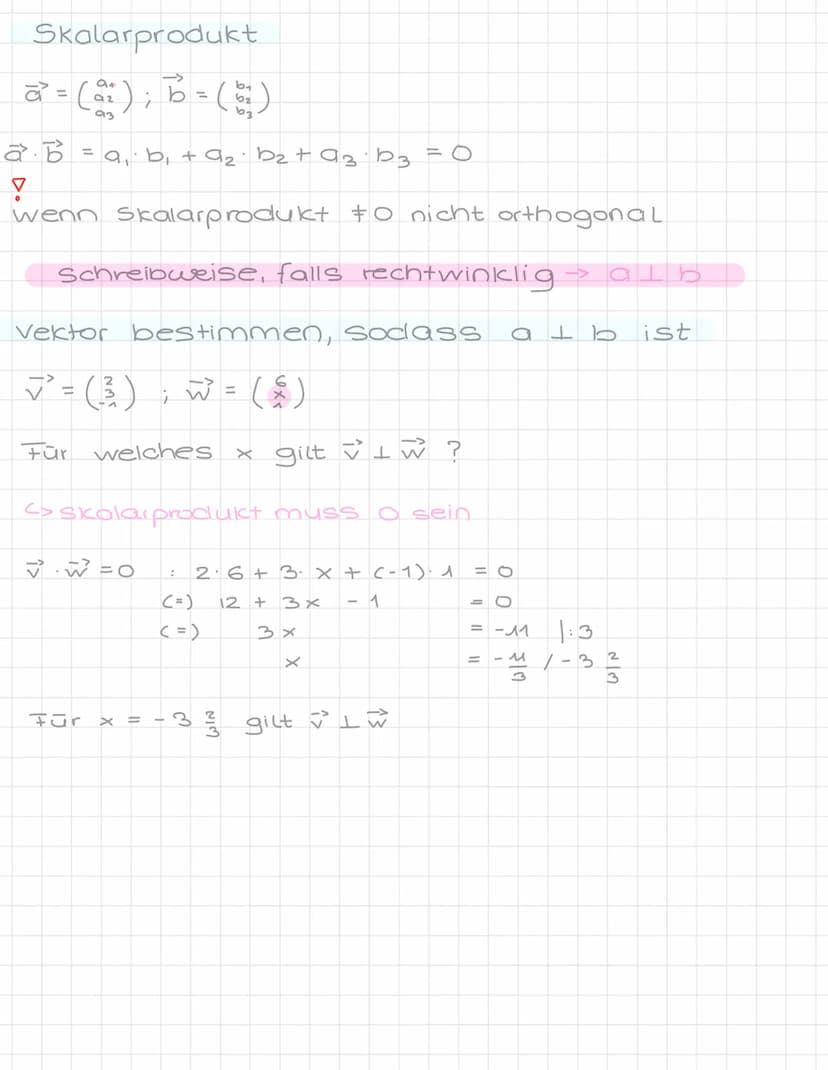 Skalarprodukt
a⃗ = (a₁ a₂ a₃) ; b⃗ = (b₁ b₂ b₃)
a⃗ · b⃗ = a₁ · b₁ + a₂ · b₂ + a₃ · b₃ = 0
wenn Skalarprodukt ≠ 0 nicht orthogonal
Schreibweise, falls rechtwinklig → a ⊥ b
Vektor bestimmen, sodass a ⊥ b ist
v⃗ = (2 3 -1) ; w⃗ = (6 x 1)
Für welches x gilt v⃗ ⊥ w⃗ ?
↳ Skolarprodukt muss 0 sein
v⃗ · w⃗ = 0 : 2 · 6 + 3 · x + (-1) · 1 = 0
(=) 12 + 3x - 1 = 0
(=) 3x = -11 | : 3
x = - 11/3 / - 3 2/3
Für x = - 3 2/3 gilt v⃗ ⊥ w⃗